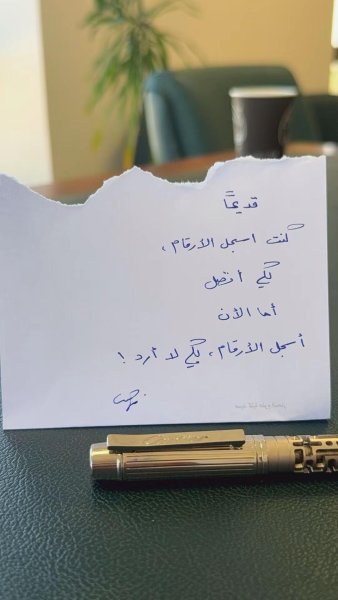 قديمًا
كنت اسجل الأرقام،
لكي أتصل
أما الأن
أسجل الأرقام، لكي لا أرد !